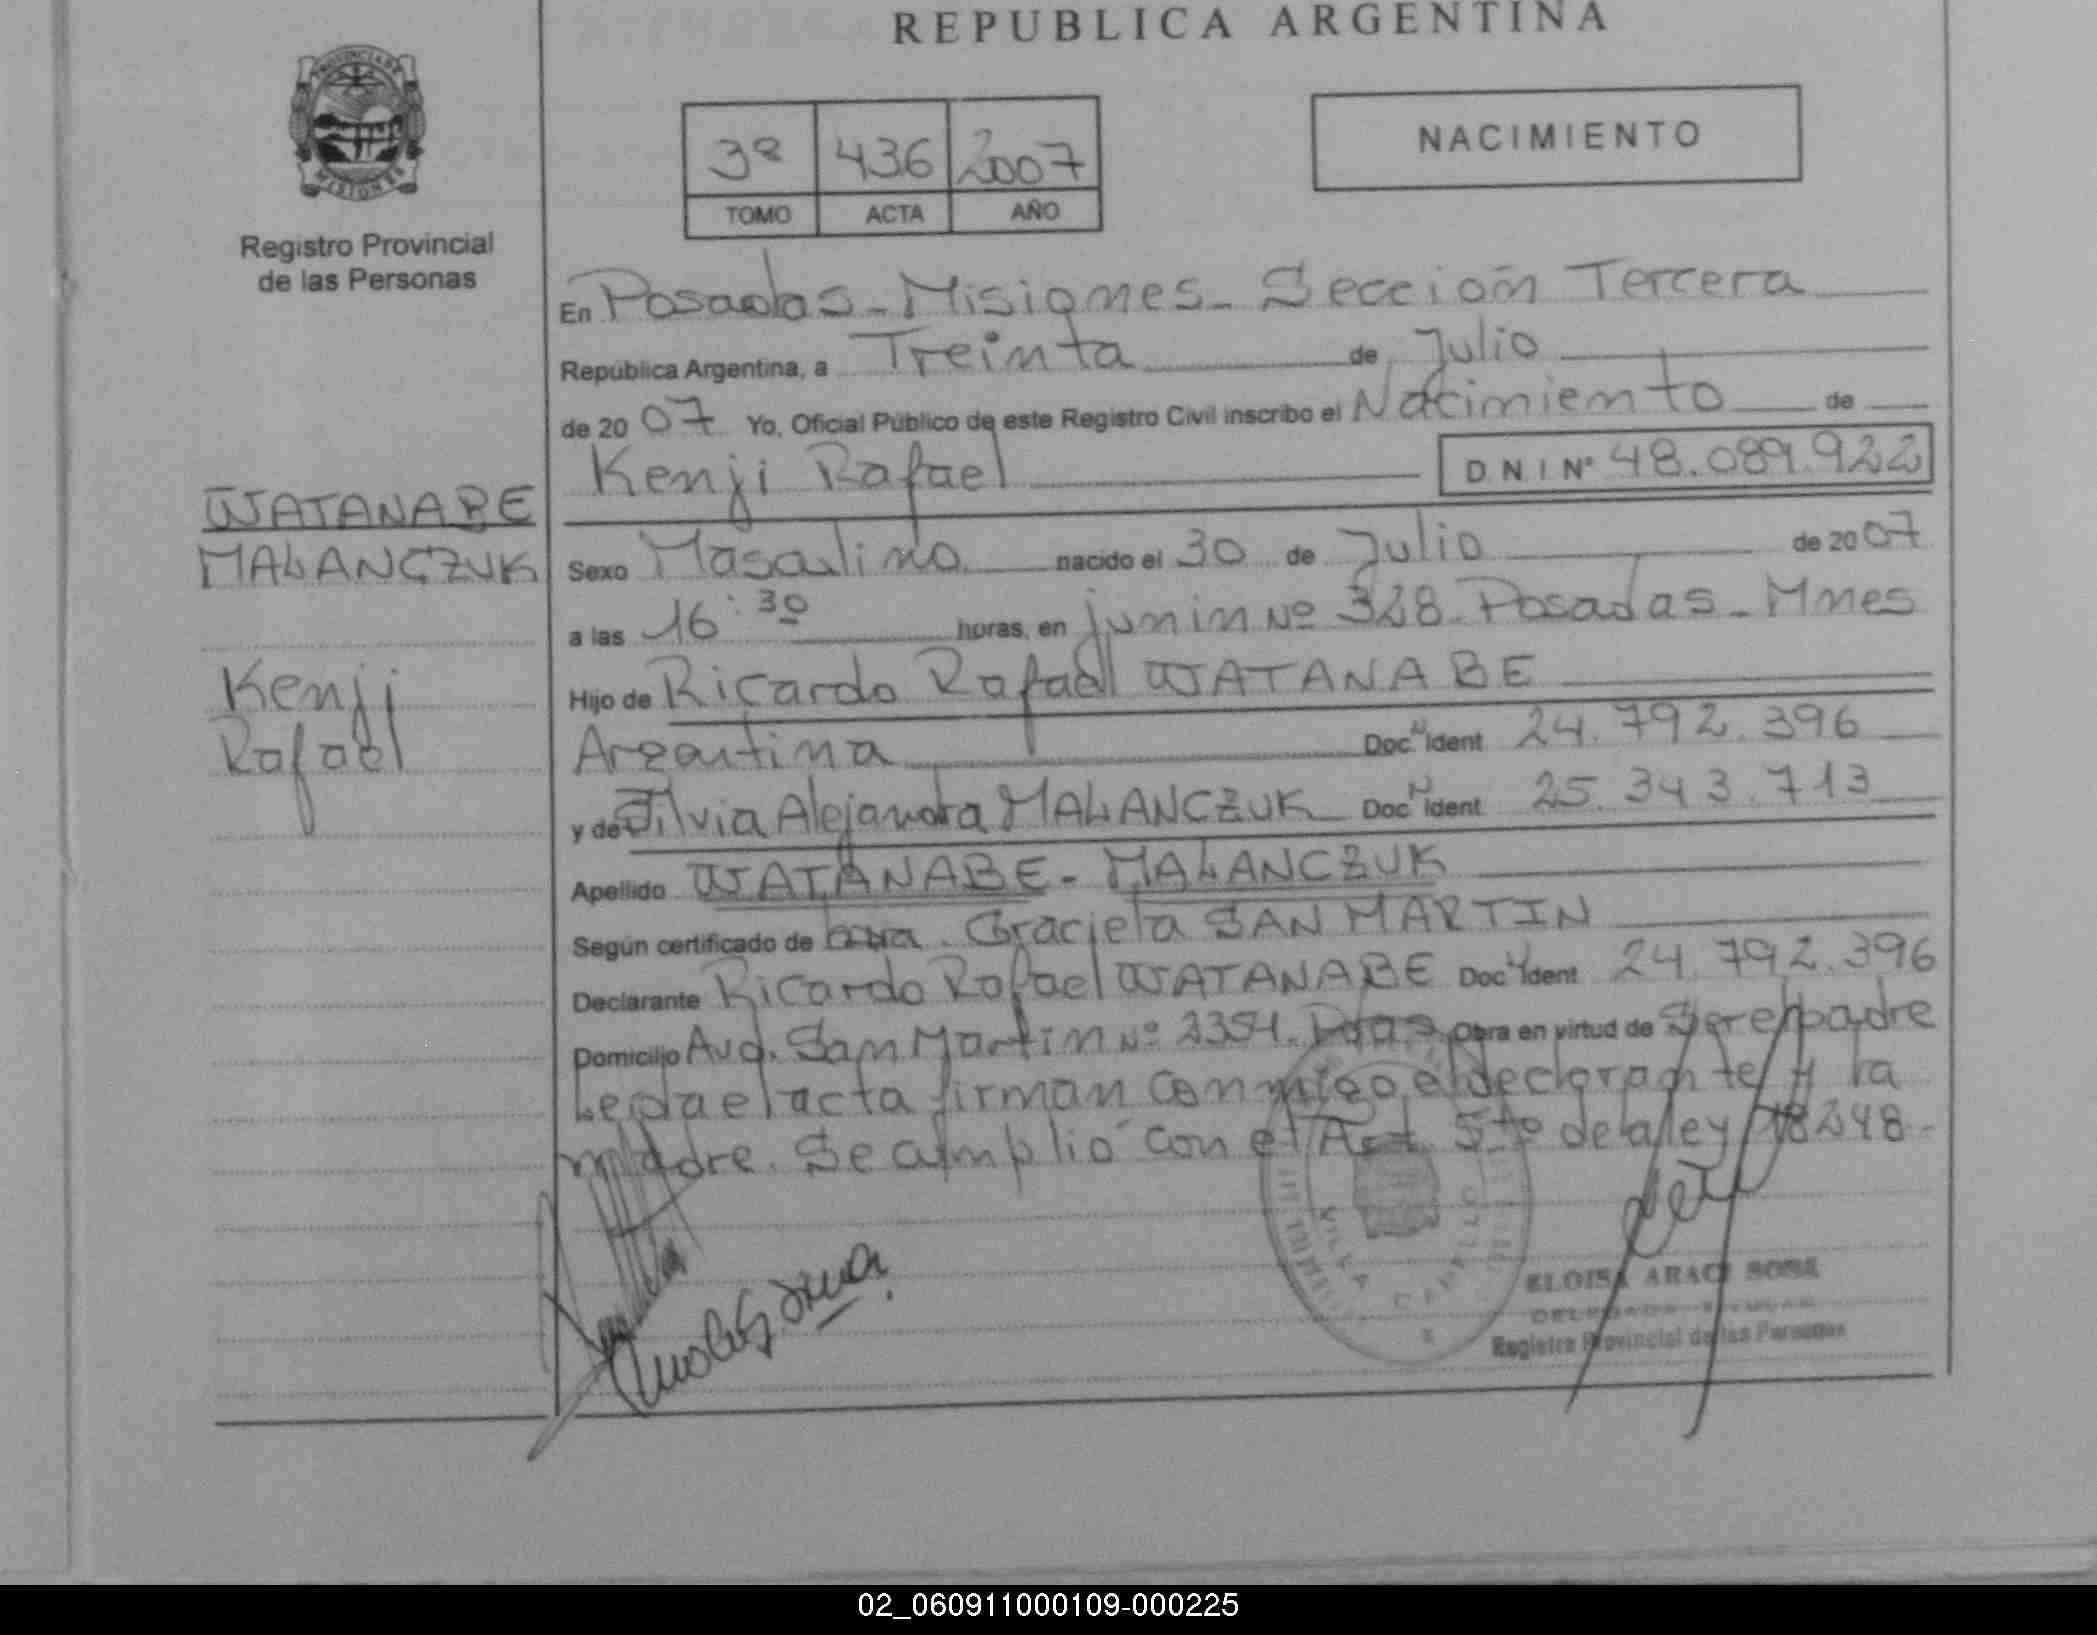 REPUBLICA ARGENTINA
PROVINCIA DE MISIONES
Registro Provincial
de las Personas
3ª 436 2007
TOMO ACTA AÑO
NACIMIENTO
En Posadas - Misiones - Sección Tercera
República Argentina, a Treinta de Julio
de 20 07 Yo, Oficial Público de este Registro Civil inscribo el Nacimiento de
Kenji Rafael D.N.I Nº 48.089.922
WATANABE
MALANCZUK
Kenji
Rafael
Sexo Masculino nacido el 30 de Julio de 20 07
a las 16:30 horas, en junin Nº 328 - Posadas - Mnes
Hijo de Ricardo Rafael WATANABE
Argentina Doc. N Ident 24.792.396
y de Silvia Alejandra MALANCZUK Doc N Ident 25.343.713
Apellido WATANABE - MALANCZUK
Según certificado de Graciela SAN MARTIN
Declarante Ricardo Rafael WATANABE Doc N Ident 24.792.396
Domicilio Avd. San Martin Nº 2354. Pdas Obra en virtud de Ser el padre
Leida el acta firman conmigo el declarante y la
madre. Se cumplió con el Art. 5to de la ley 18248-
VILLA CABELLO
ELOISA ARACI SOSA
DELEGADA TITULAR
Registro Provincial de las Personas
02_060911000109-000225